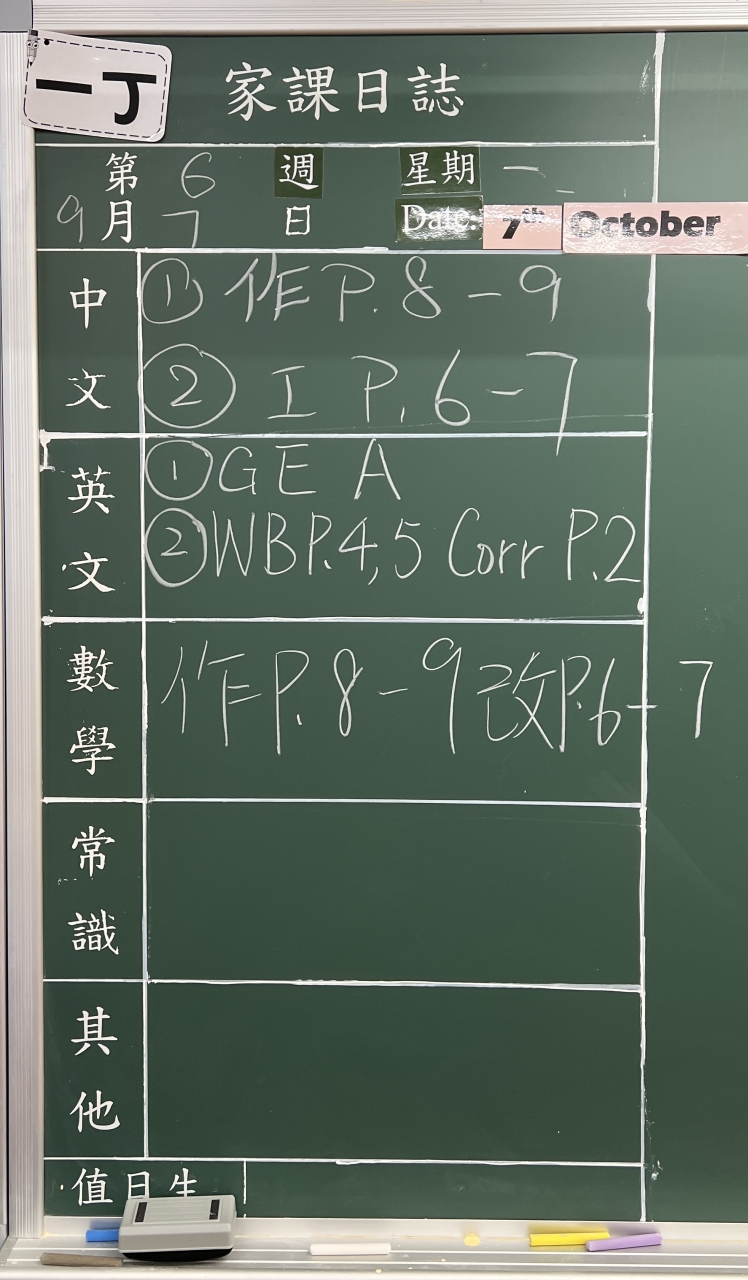 一丁
家課日誌
第 6 週 星期 一
9月 7 日 Date: 7th October
中文
① 作 P. 8 - 9
② I P. 6 - 7
英文
① GE A
② WB P.4,5 Corr P.2
數學
作 P. 8 - 9 改 P. 6 - 7
常識
其他
值日生